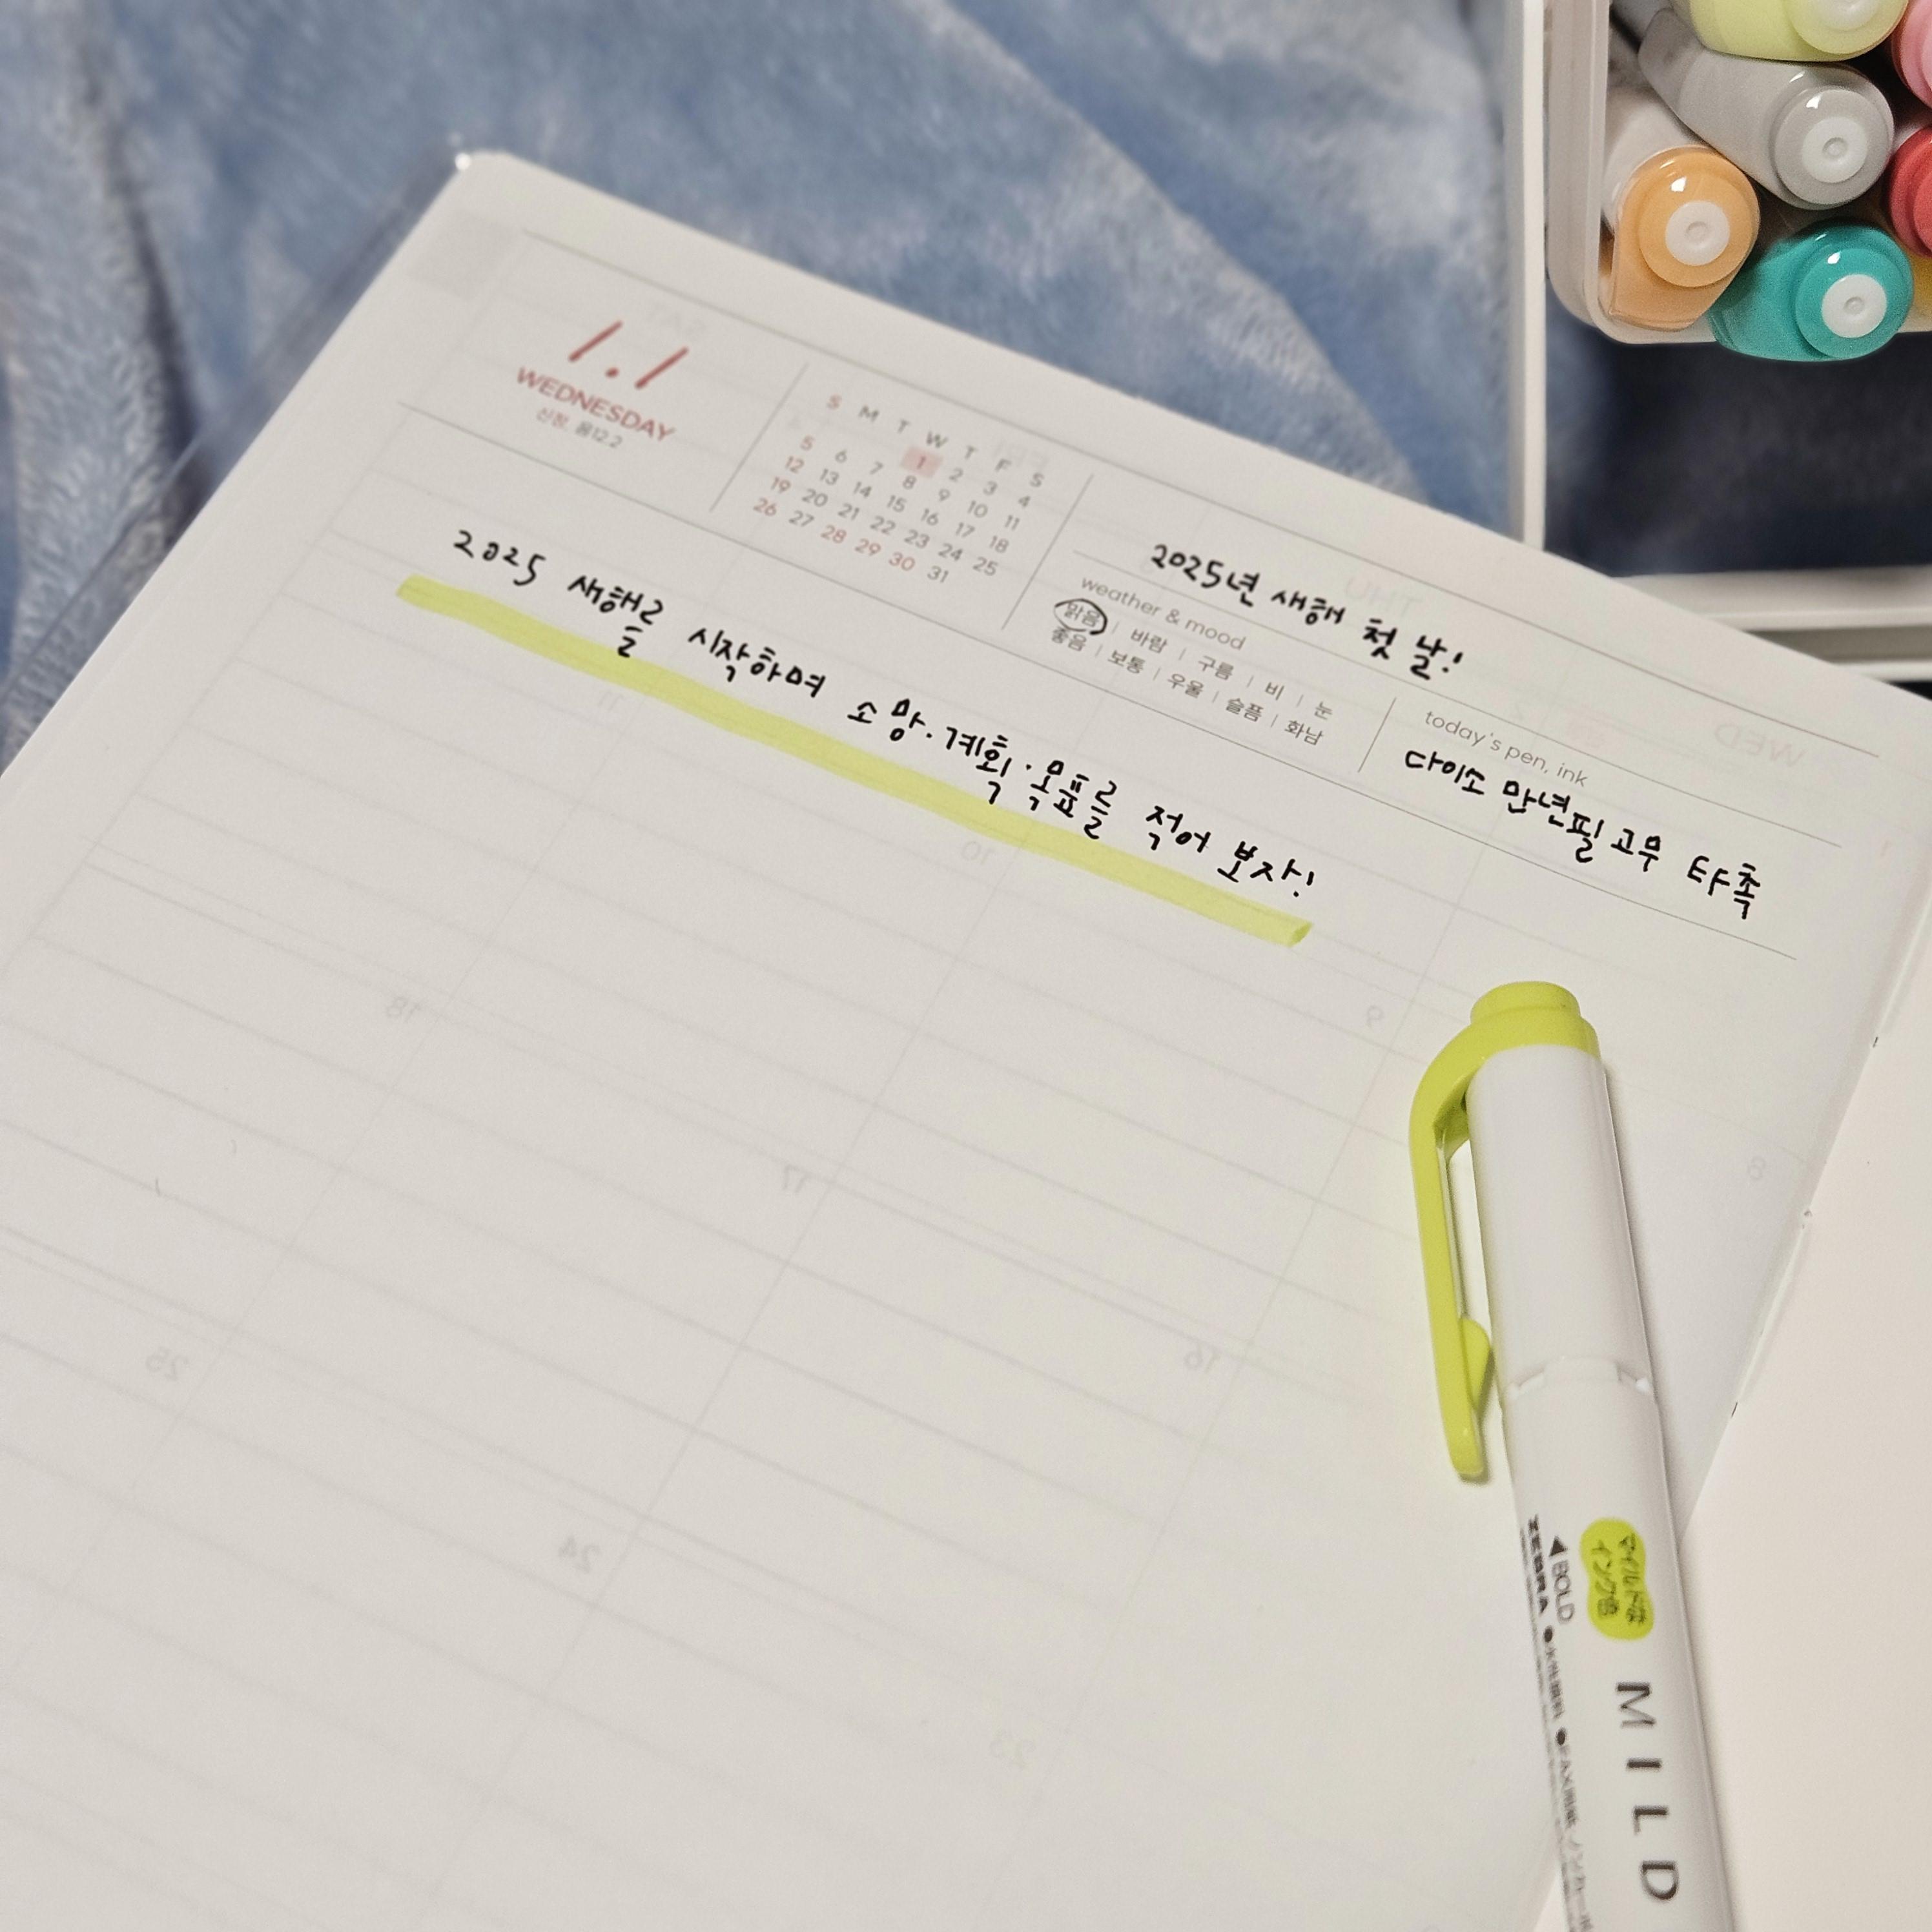 1.1
WEDNESDAY
신정. 음12.2
S M T W T F S
1 2 3 4
5 6 7 8 9 10 11
12 13 14 15 16 17 18
19 20 21 22 23 24 25
26 27 28 29 30 31
2025년 새해 첫 날!
weather & mood
맑음 | 바람 | 구름 | 비 | 눈
좋음 | 보통 | 우울 | 슬픔 | 화남
today's pen, ink
다이소 만년필 고무 타촉
2025 새해를 시작하며 소망·계획·목표를 적어 보자!
マイルドな
インク色
BOLD
ZEBRA
MILD